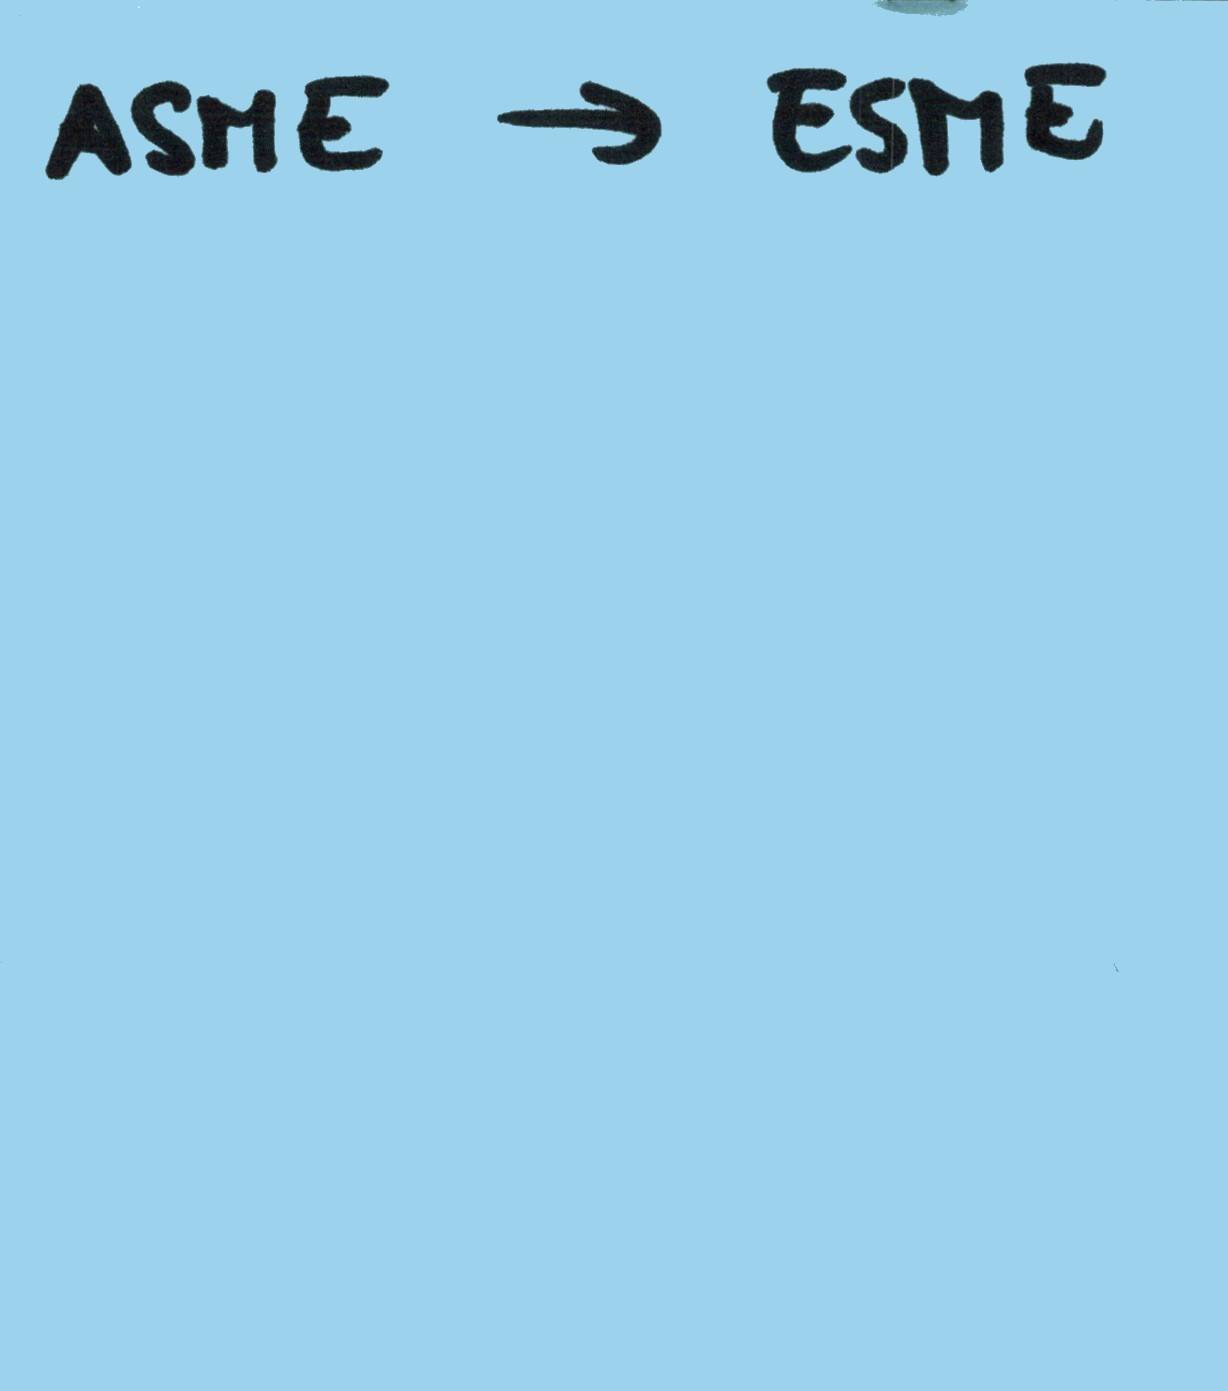 ASME → ESME